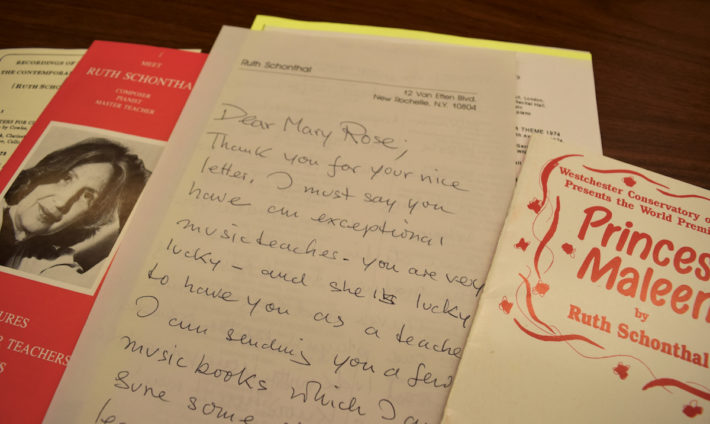 RECORDINGS OF
THE CONTEMPORA
RUTH SCHO
MEET
RUTH SCHONTHA
COMPOSER
PIANIST
MASTER TEACHER
URES
R TEACHERS
S
Ruth Schonthal
12 Van Etten Blvd.
New Rochelle, N.Y. 10804
Dear Mary Rose;
Thank you for your nice
letter. I must say you
have an exceptional
music teacher - you are very
lucky - and she is lucky
to have you as a teache
I am sending you a few
music books which I a
sure some
London,
THEME 1974
Westchester Conservatory o
Presents the World Premi
Princes
Maleen
by
Ruth Schonthal